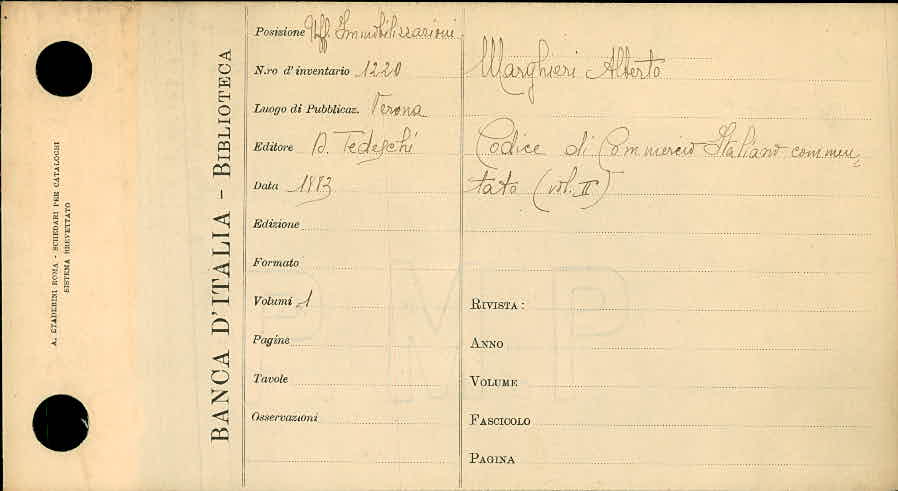 A. STADERINI ROMA - SCHEDARI PER CATALOGHI
SISTEMA BREVETTATO
BANCA D'ITALIA - BIBLIOTECA
Posizione Uff. Immobilizzazioni
N.ro d'inventario 1220
Luogo di Pubblicaz. Verona
Editore D. Tedeschi
Data 1883
Edizione
Formato
Volumi 1
Pagine
Tavole
Osservazioni
Marghieri Alberto
Codice di Commercio Italiano commen-
tato (vol. II)
RIVISTA:
ANNO
VOLUME
FASCICOLO
PAGINA